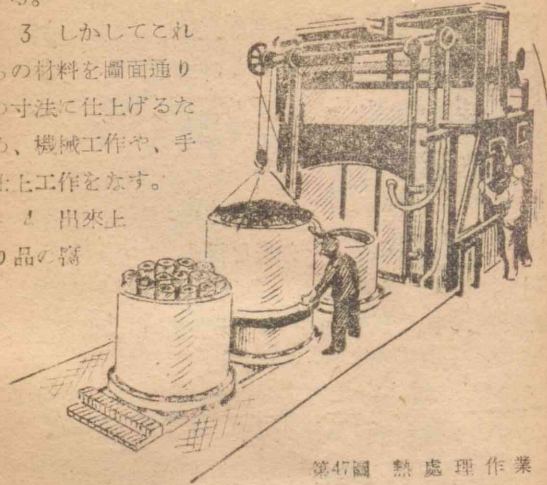 る。
3 しかしてこれ
らの材料を圖面通り
の寸法に仕上げるた
め、機械工作や、手
仕上工作をなす。
4 出來上
り品の腐
第47圖 熱處理作業